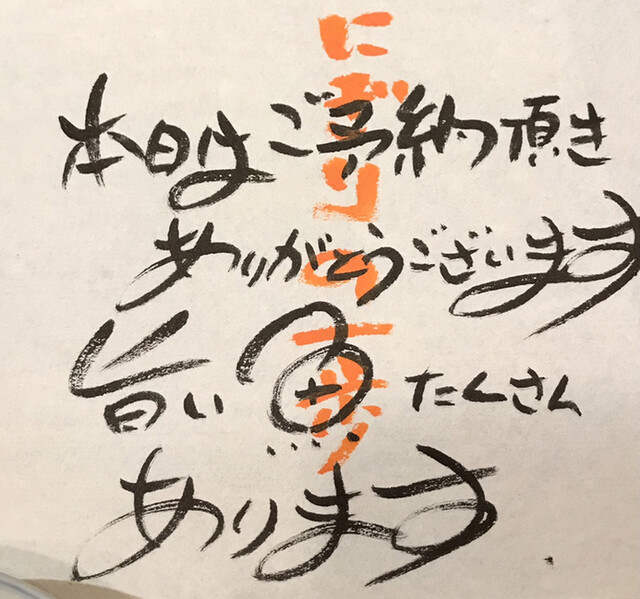 本日はご予約頂き
ありがとうございます
旨い魚たくさん
あります
にぎりの一歩